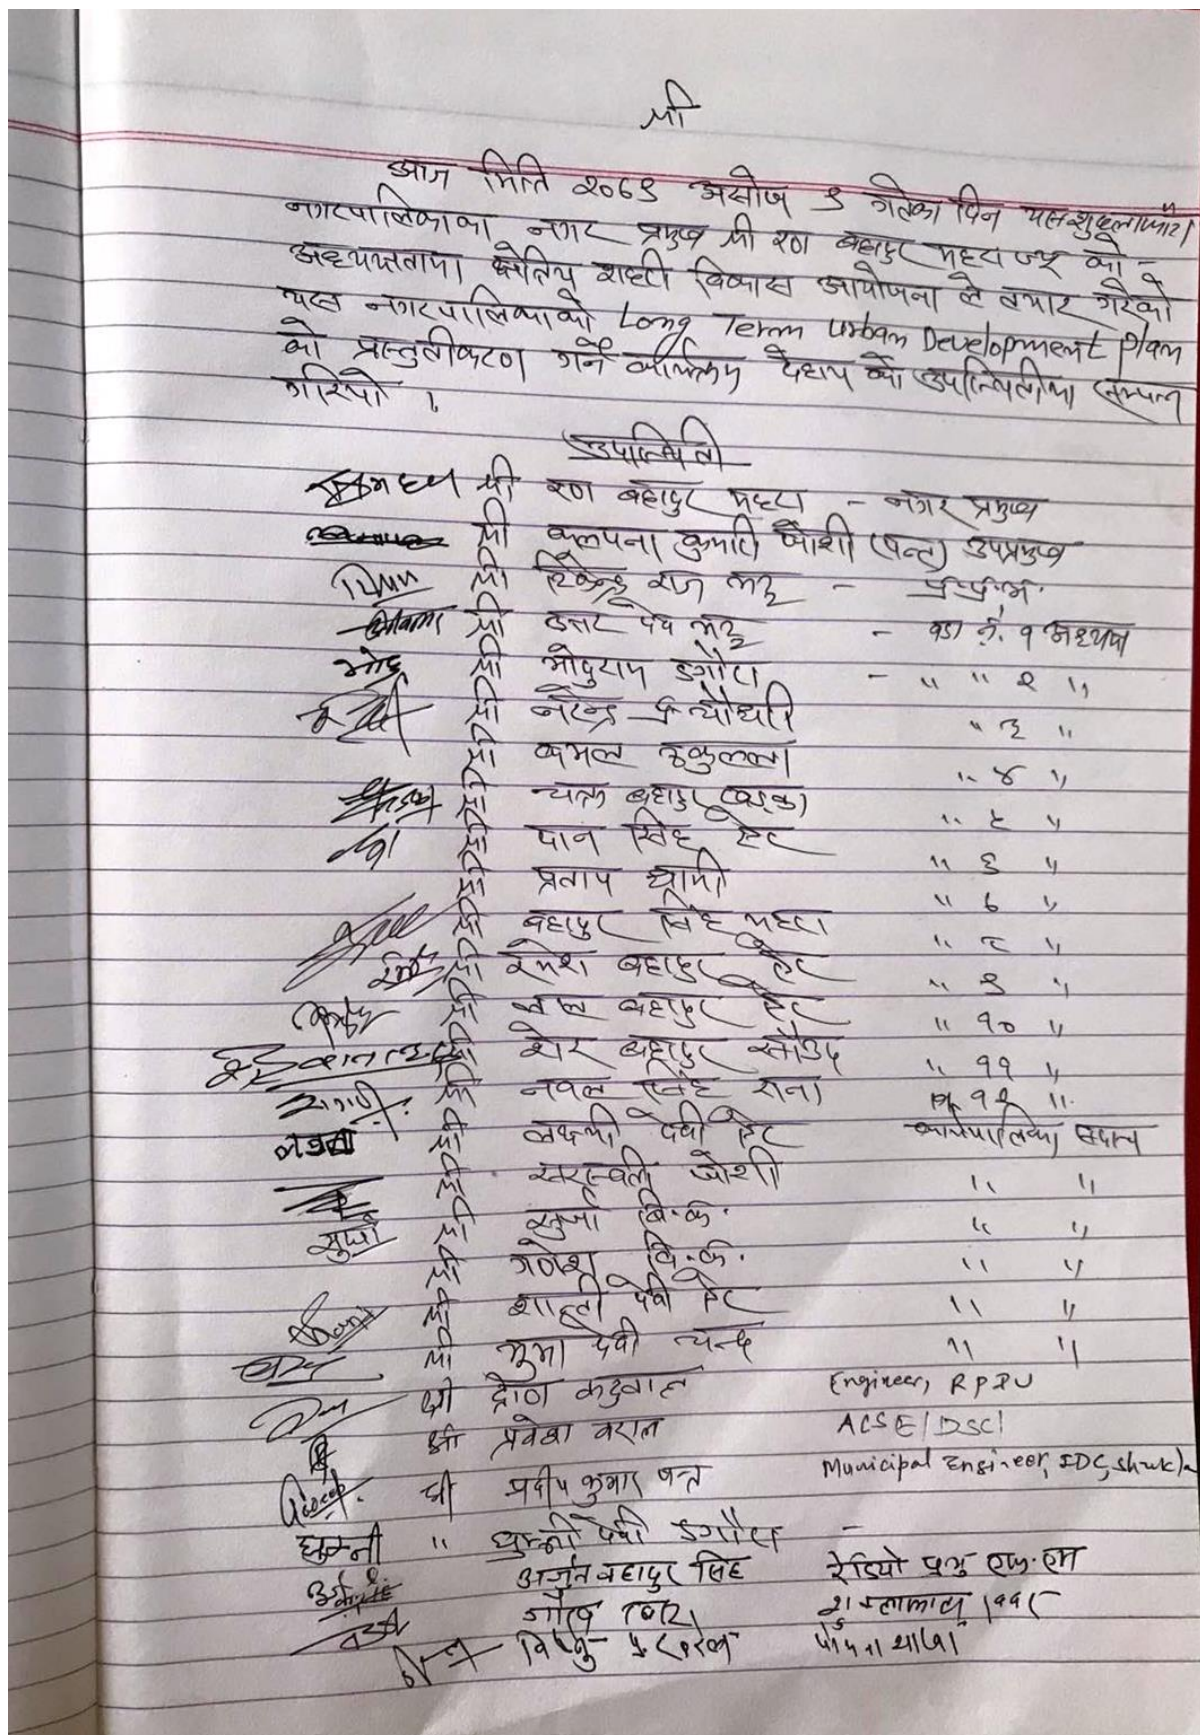 श्री
आज मिति २०७९ असोज ९ गतेका दिन यस शुक्लाफाँटा
नगरपालिकाका नगर प्रमुख श्री रण बहादुर महरा ज्यू को -
अध्यक्षतामा क्षेत्रिय शहरी विकास आयोजना ले तयार गरेको
यस नगरपालिकाको Long Term Urban Development Plan
को प्रस्तुतीकरण गर्ने कार्यक्रम देहाय को उपस्थितीमा सम्पन्न
गरियो ।
उपस्थिती
श्री रण बहादुर महरा - नगर प्रमुख
श्री कल्पना कुमारी जोशी (पन्त) उपप्रमुख
श्री राज भट्ट - प्र.प्र.अ.
श्री डत्तर देव भट्ट - वडा नं. १ अध्यक्ष
श्री मोदुराम डगौरा - " " २ "
श्री नरेन्द्र प्र. चौधरी " ३ "
श्री कमल " ४ "
श्री चक्र बहादुर खड्का " ५ "
श्री दान सिंह ऐर " ६ "
श्री प्रताप धामी " ७ "
श्री बहादुर सिंह महरा " ८ "
श्री रमेश बहादुर ऐर " ९ "
श्री लाल बहादुर ऐर " १० "
श्री शेर बहादुर साउद " ११ "
श्री नवल सिंह राना १२ "
श्री लक्ष्मी देवी ऐर कार्यपालिका सदस्य
श्री सरस्वती जोशी " "
सुर्जा श्री सुर्जा बि.क. " "
श्री गणेश बि.क. " "
श्री देवी ऐर " "
श्री जुमा देवी चन्द " "
श्री द्रोण कटुवाल Engineer, RPIU
श्री प्रवेश वराल ACSE/DSC
श्री प्रदीप कुमार पन्त Municipal Engineer, IDC, Shukla
घुम्नी " घुम्नी देवी डगौरा -
अर्जुन बहादुर सिंह रेडियो प्रभु एफ.एम